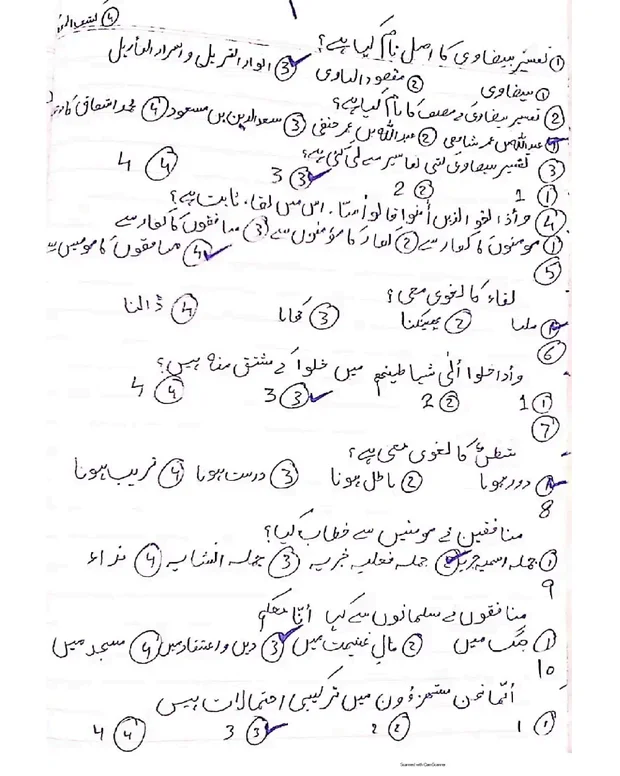 ① تفسیر بیضاوی کا اصل نام کیا ہے؟
① بیضاوی ② مقصود الہادی ③ انوار التنزیل و اسرار التأویل ④
② تفسیر بیضاوی کے مصنف کا نام کیا ہے؟
① عبداللہ بن عمر شافعی ② عبداللہ بن عمر حنفی ③ سعد الدین بن مسعود ④ محمد اسحاق
③ تفسیر بیضاوی کتنی تفاسیر سے لی گئی ہے؟
① 1 ② 2 ③ 3 ④ 4
④ وأذا لقوا الذین اٰمنوا قالوا اٰمنا، اس میں لقاء ثابت ہے؟
① مومنوں کا کفار سے ② کفار کا مؤمنوں سے ③ منافقوں کا کفار سے
④ منافقوں کا مومنین سے
⑤
لقاء کا لغوی معنی؟
① ملنا ② پھینکنا ③ کھانا ④ ڈالنا
⑥
وأذا خلوا ألٰی شیاطینھم میں خلوا کے مشتق منہ ہیں؟
① 1 ② 2 ③ 3 ④ 4
⑦
شطن کا لغوی معنی ہے؟
① دور ہونا ② باطل ہونا ③ درست ہونا ④ قریب ہونا
8
منافقین نے مومنین سے خطاب کیا؟
① جملہ اسمیہ خبریہ ② جملہ فعلیہ خبریہ ③ جملہ انشایہ ④ نداء
9
منافقوں نے مسلمانوں سے کہا أنّا معکم
① جنگ میں ② مال غنیمت میں ③ دین و اعتقاد میں ④ مسجد میں
10
أنّما نحن مستھزؤن میں ترکیبی احتمالات ہیں
① 1 ② 2 ③ 3 ④ 4
Scanned with CamScanner